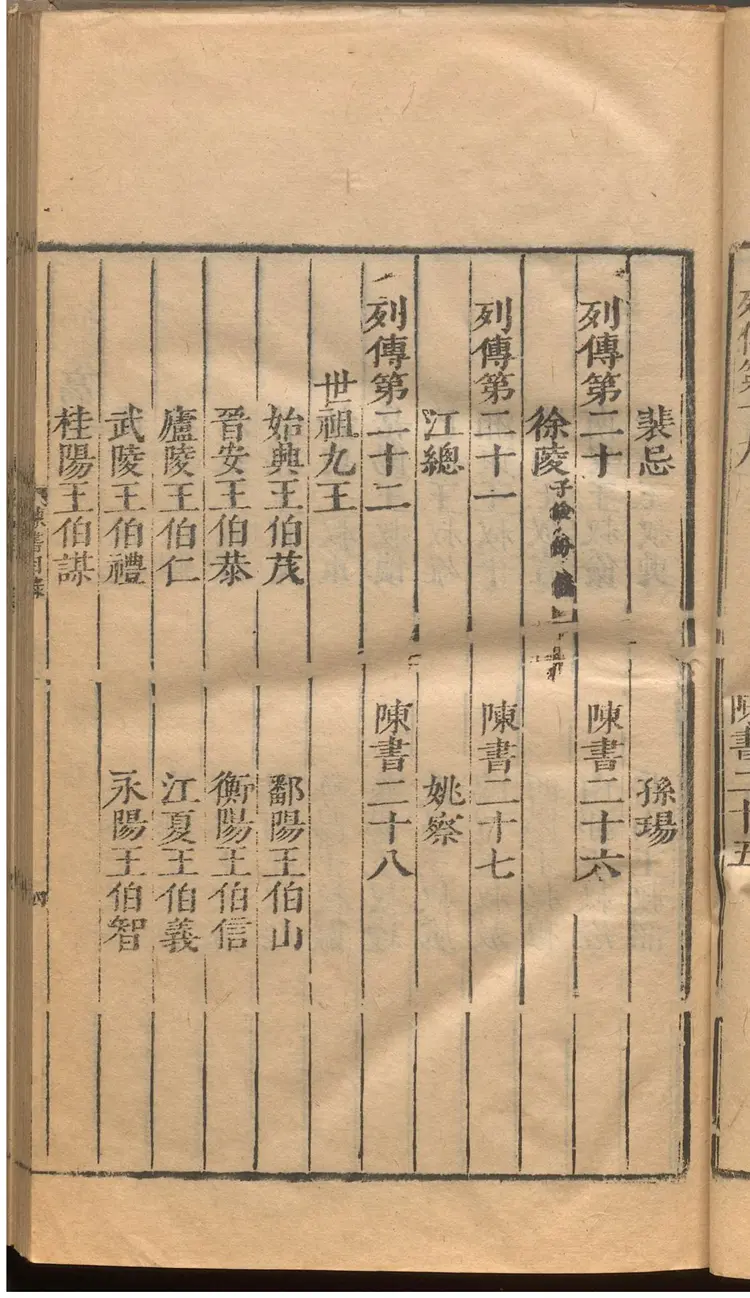 裴忌　孫瑒
列傳第二十　陳書二十六
徐陵子儉份儀
列傳第二十一　陳書二十七
江總　姚察
列傳第二十二　陳書二十八
世祖九王
始興王伯茂　鄱陽王伯山
晉安王伯恭　衡陽王伯信
廬陵王伯仁　江夏王伯義
武陵王伯禮　永陽王伯智
桂陽王伯謀
陳書目錄
四